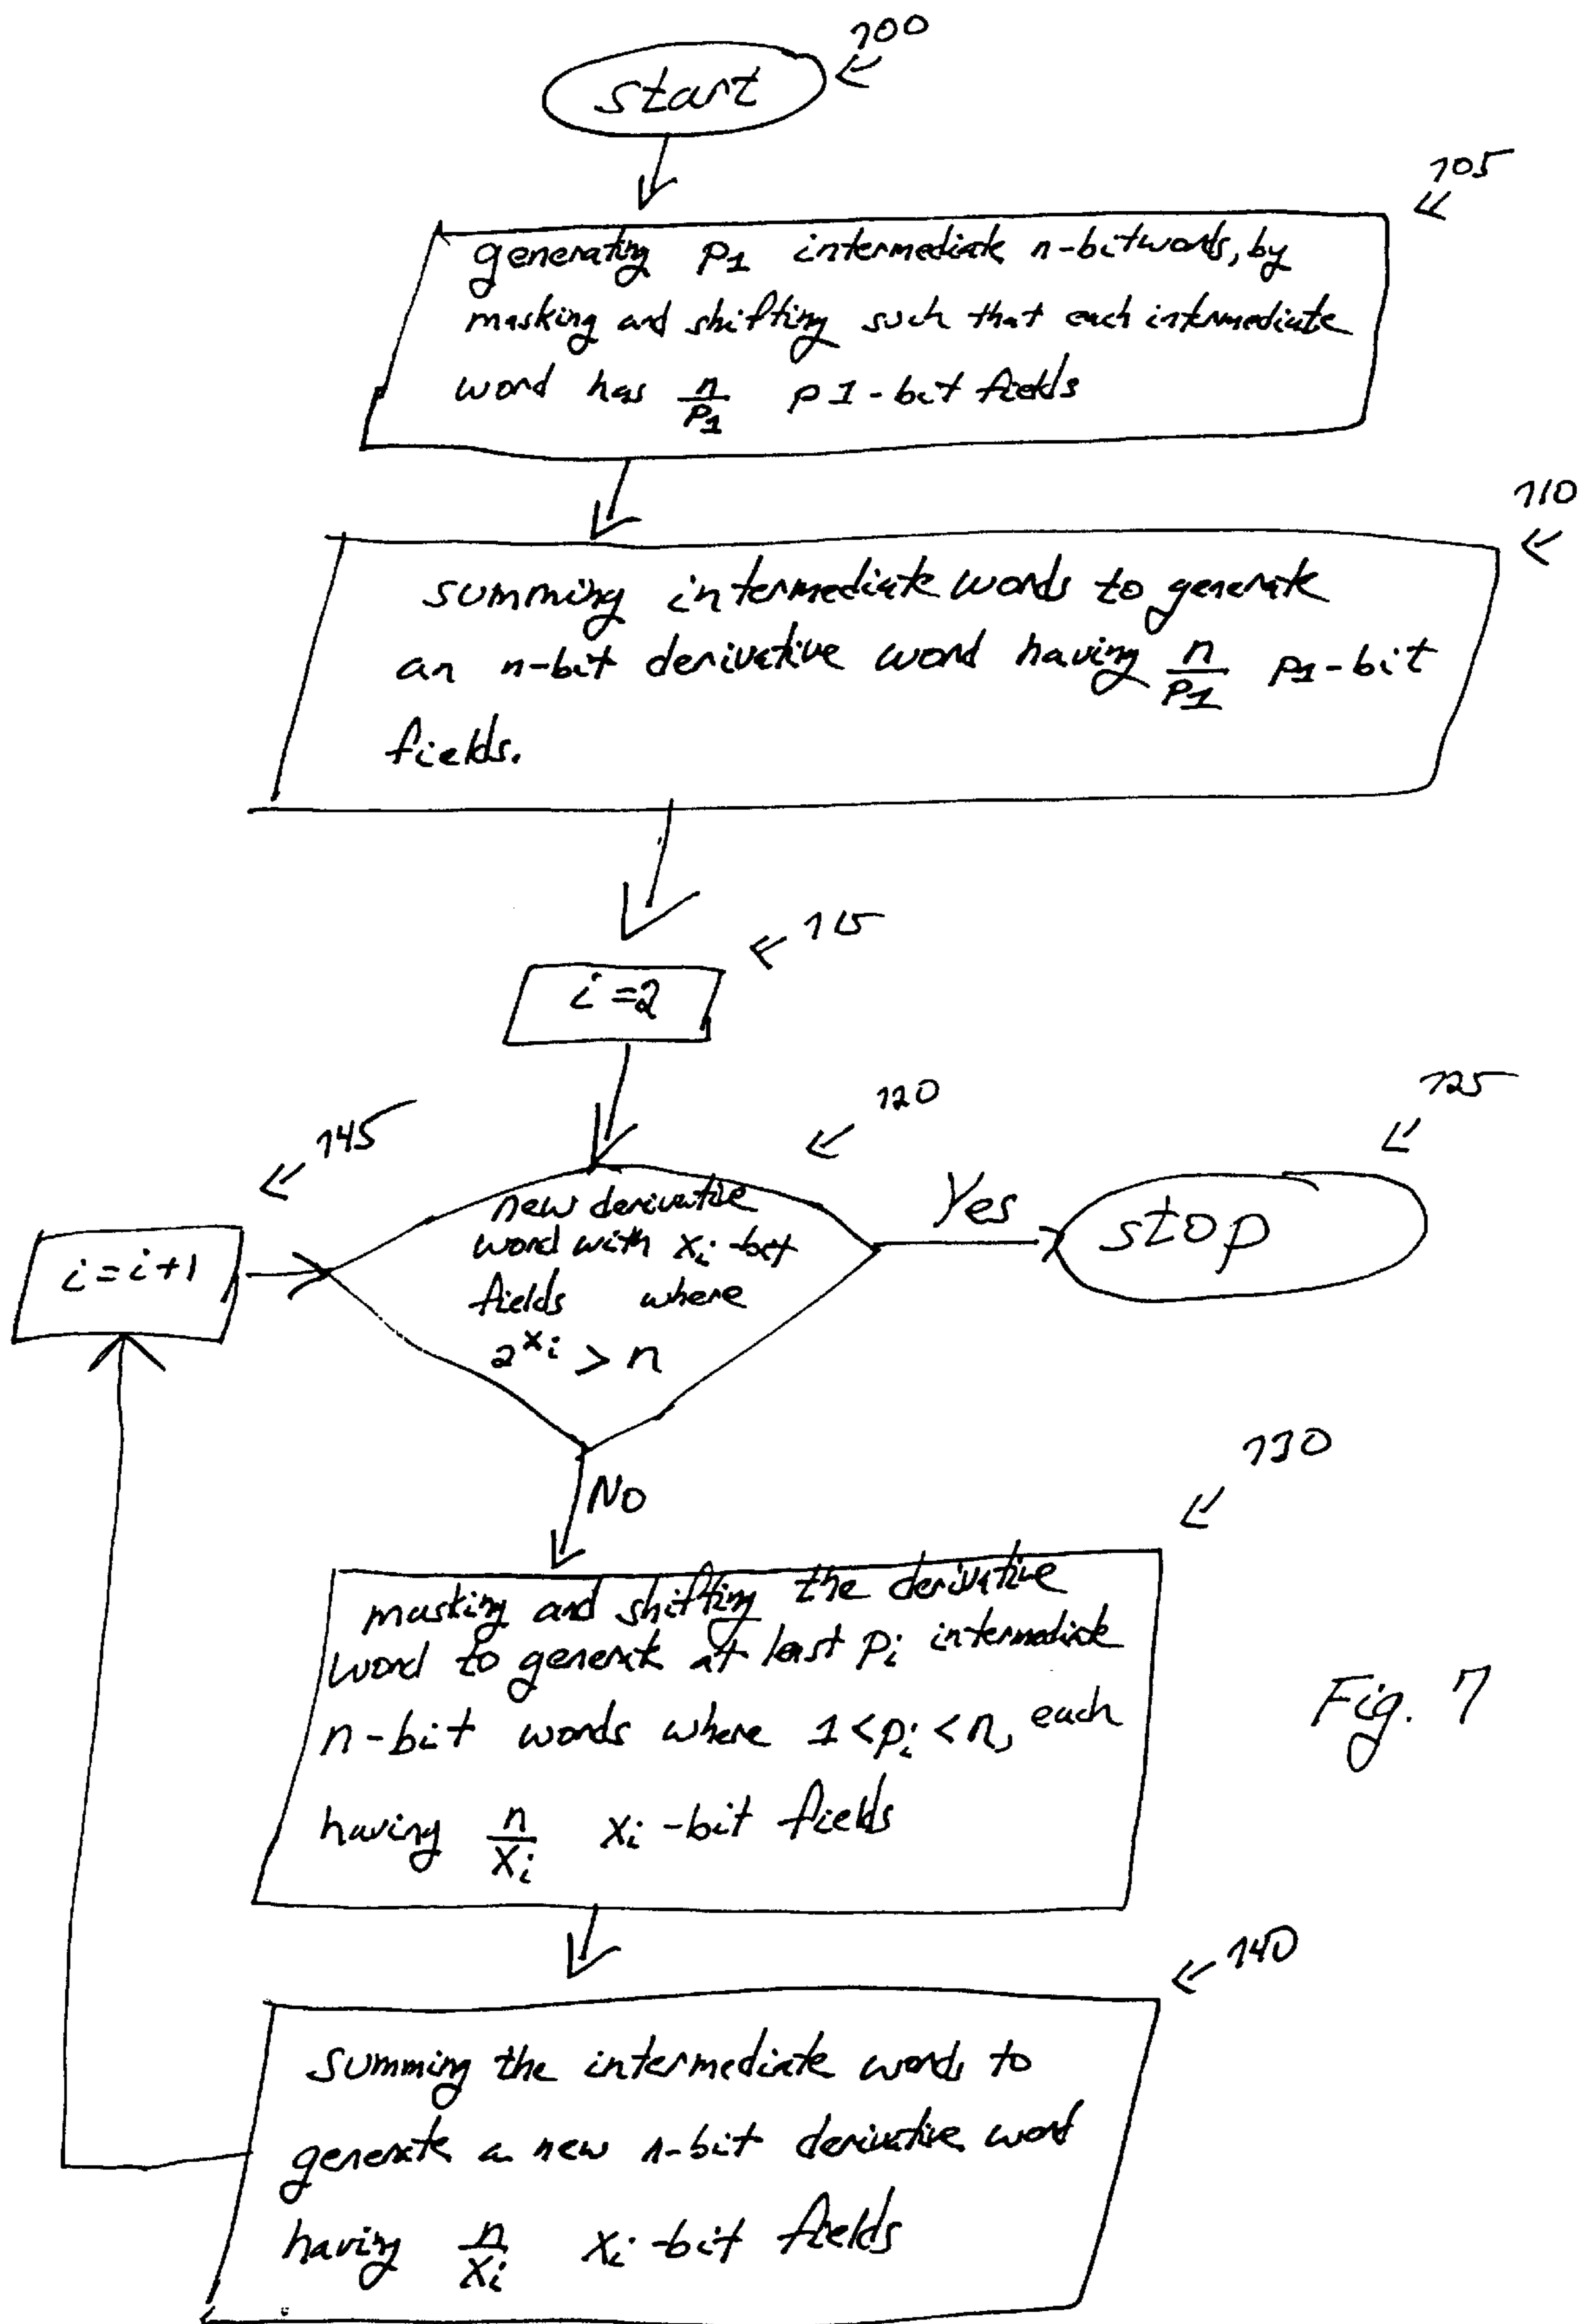 100
start
105
generating p1 intermediate n-bit words, by
masking and shifting such that each intermediate
word has n/p1 p1-bit fields
110
summing intermediate words to generate
an n-bit derivative word having n/p1 p1-bit
fields.
115
i=2
120
125
145
new derivative
word with xi-bit
fields where
2^xi > n
Yes
stop
i=i+1
NO
130
masking and shifting the derivative
word to generate at least pi intermediate
n-bit words where 1<pi<n, each
having n/xi xi-bit fields
Fig. 7
140
summing the intermediate words to
generate a new n-bit derivative word
having n/xi xi-bit fields